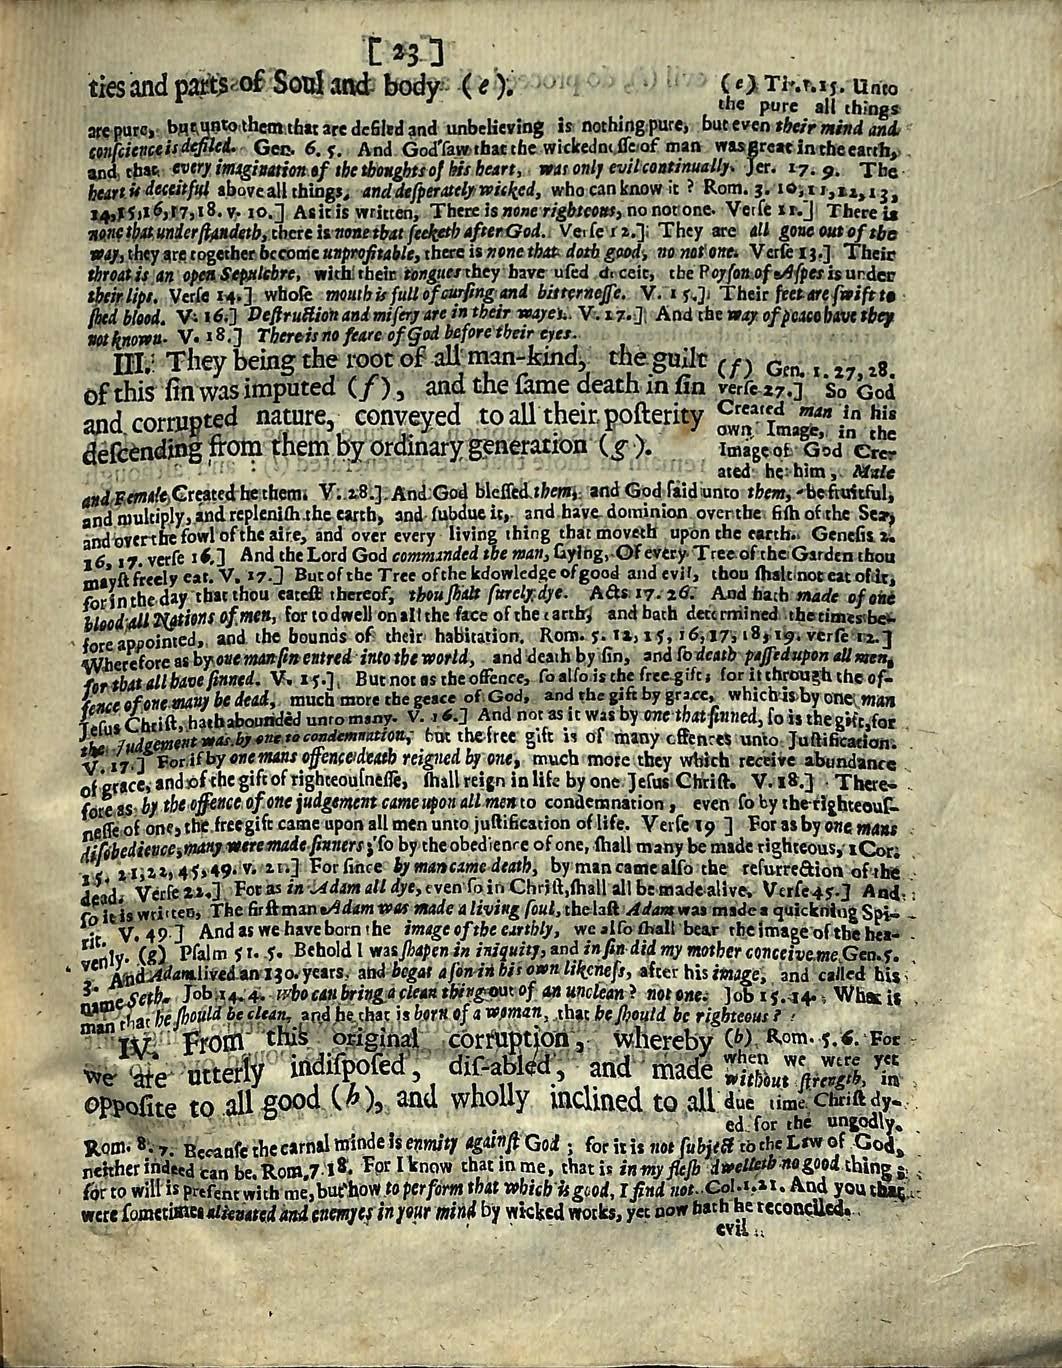 [ 23 ]
ties and parts of Soul and body (e).
(e) Tit. 1. 15. Unto
the pure all things
are pure, but unto them that are defiled and unbelieving is nothing pure, but even their mind and
conscience is defiled. Gen. 6. 5. And God saw that the wickednesse of man was great in the earth,
and that every imagination of the thoughts of his heart, was only evil continually. Jer. 17. 9. The
heart is deceitful above all things, and desperately wicked, who can know it ? Rom. 3. 10,11,12,13,
14,15,16,17,18. v. 10.] As it is written, There is none righteous, no not one. Verse 11.] There is
none that understandeth, there is none that seeketh after God. Verse 12.] They are all gone out of the
way, they are together become unprofitable, there is none that doth good, no not one. Verse 13.] Their
throat is an open Sepulchre, with their tongues they have used deceit, the Poyson of Aspes is under
their lips. Verse 14.] whose mouth is full of cursing and bitternesse. V. 15.] Their feet are swift to
shed blood. V. 16.] Destruction and misery are in their wayes. V. 17.] And the way of peace have they
not known. V. 18.] There is no feare of God before their eyes.
III. They being the root of all man-kind, the guilt
of this sin was imputed (f), and the same death in sin
and corrupted nature, conveyed to all their posterity
descending from them by ordinary generation (g).
(f) Gen. 1. 27, 28.
verse 27.] So God
Created man in his
own Image, in the
Image of God Cre-
ated he him, Male
and Female, Created he them. V. 28.] And God blessed them, and God said unto them, be fruitful,
and multiply, and replenish the earth, and subdue it, and have dominion over the fish of the Sea,
and over the fowl of the aire, and over every living thing that moveth upon the earth. Genesis 2.
16, 17. verse 16.] And the Lord God commanded the man, saying, Of every Tree of the Garden thou
mayst freely eat. V. 17.] But of the Tree of the kdowledge of good and evil, thou shalt not eat of it,
for in the day that thou eatest thereof, thou shalt surely dye. Acts 17. 26. And hath made of one
blood all Nations of men, for to dwell on all the face of the earth, and hath determined the times be-
fore appointed, and the bounds of their habitation. Rom. 5. 12, 15, 16, 17, 18, 19. verse 12.]
Wherefore as by one man sin entred into the world, and death by sin, and so death passed upon all men,
for that all have sinned. V. 15.] But not as the offence, so also is the free gift; for it through the of-
fence of one many be dead, much more the geace of God, and the gift by grace, which is by one man
Jesus Christ, hath abounded unto many. V. 16.] And not as it was by one that sinned, so is the gift, for
the Judgement was by one to condemnation, but the free gift is of many offences unto Justification.
V. 17.] For if by one mans offence death reigned by one, much more they which receive abundance
of grace, and of the gift of righteousnesse, shall reign in life by one Jesus Christ. V. 18.] There-
fore as by the offence of one judgement came upon all men to condemnation, even so by the righteous-
nesse of one, the free gift came upon all men unto justification of life. Verse 19 ] For as by one mans
disobedience, many were made sinners; so by the obedience of one, shall many be made righteous, 1 Cor.
15. 21, 22, 45, 49. v. 21.] For since by man came death, by man came also the resurrection of the
dead. Verse 22.] For as in Adam all dye, even so in Christ, shall all be made alive. Verse 45.] And
so it is written, The first man Adam was made a living soul, the last Adam was made a quickning Spi-
rit. V. 49.] And as we have born the image of the earthly, we also shall bear the image of the hea-
venly. (g) Psalm 51. 5. Behold I was shapen in iniquity, and in sin did my mother conceive me, Gen. 5.
3. And Adam lived an 130. years, and begat a son in his own likeness, after his image, and called his
name Seth. Job 14. 4. who can bring a clean thing out of an unclean? not one. Job 15. 14. What is
man that he should be clean, and he that is born of a woman, that he should be righteous ?
IV. From this original corruption, whereby
we are utterly indisposed, dis-abled, and made
opposite to all good (h), and wholly inclined to all
(h) Rom. 5. 6. For
when we were yet
without strength, in
due time Christ dy-
ed for the ungodly.
Rom. 8. 7. Because the carnal minde is enmity against God ; for it is not subject to the Law of God,
neither indeed can be. Rom. 7. 18. For I know that in me, that is in my flesh dwelleth no good thing ;
for to will is present with me, but how to perform that which is good, I find not. Col. 1. 21. And you that
were sometimes alienated and enemyes in your mind by wicked works, yet now hath he reconciled.
evil